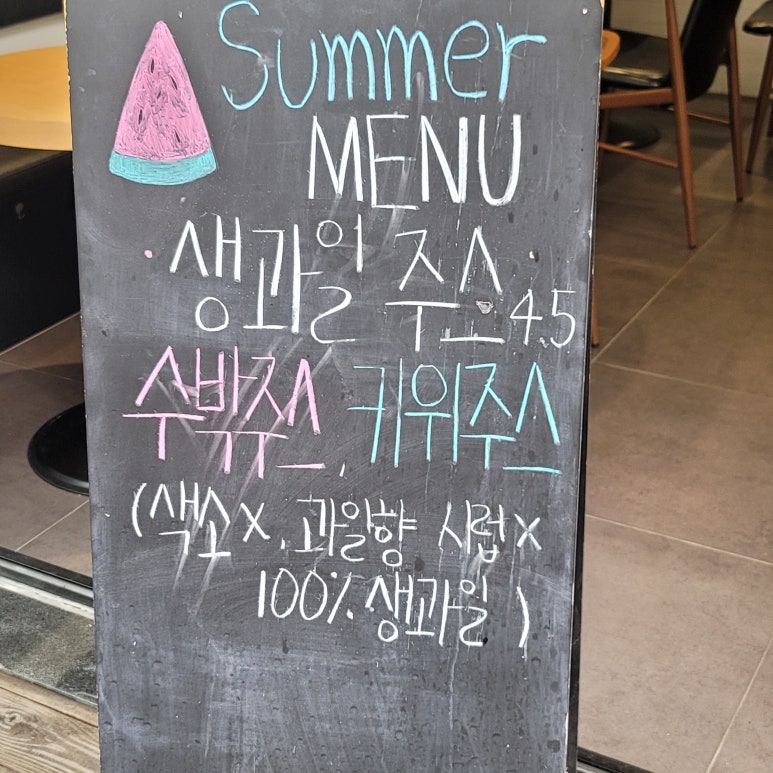 Summer
MENU
생과일 주스 4.5
수박주스, 키위주스
(색소X, 과일향 시럽X
100% 생과일)